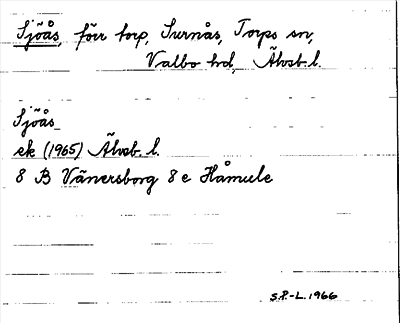 Sjöås, förr torp, Surnås, Torps sn,
Valbo hd, Älvsb. l.
Sjöås
ek (1965) Älvsb. l.
8 B Vänersborg 8 e Håmule
S.P.-L. 1966